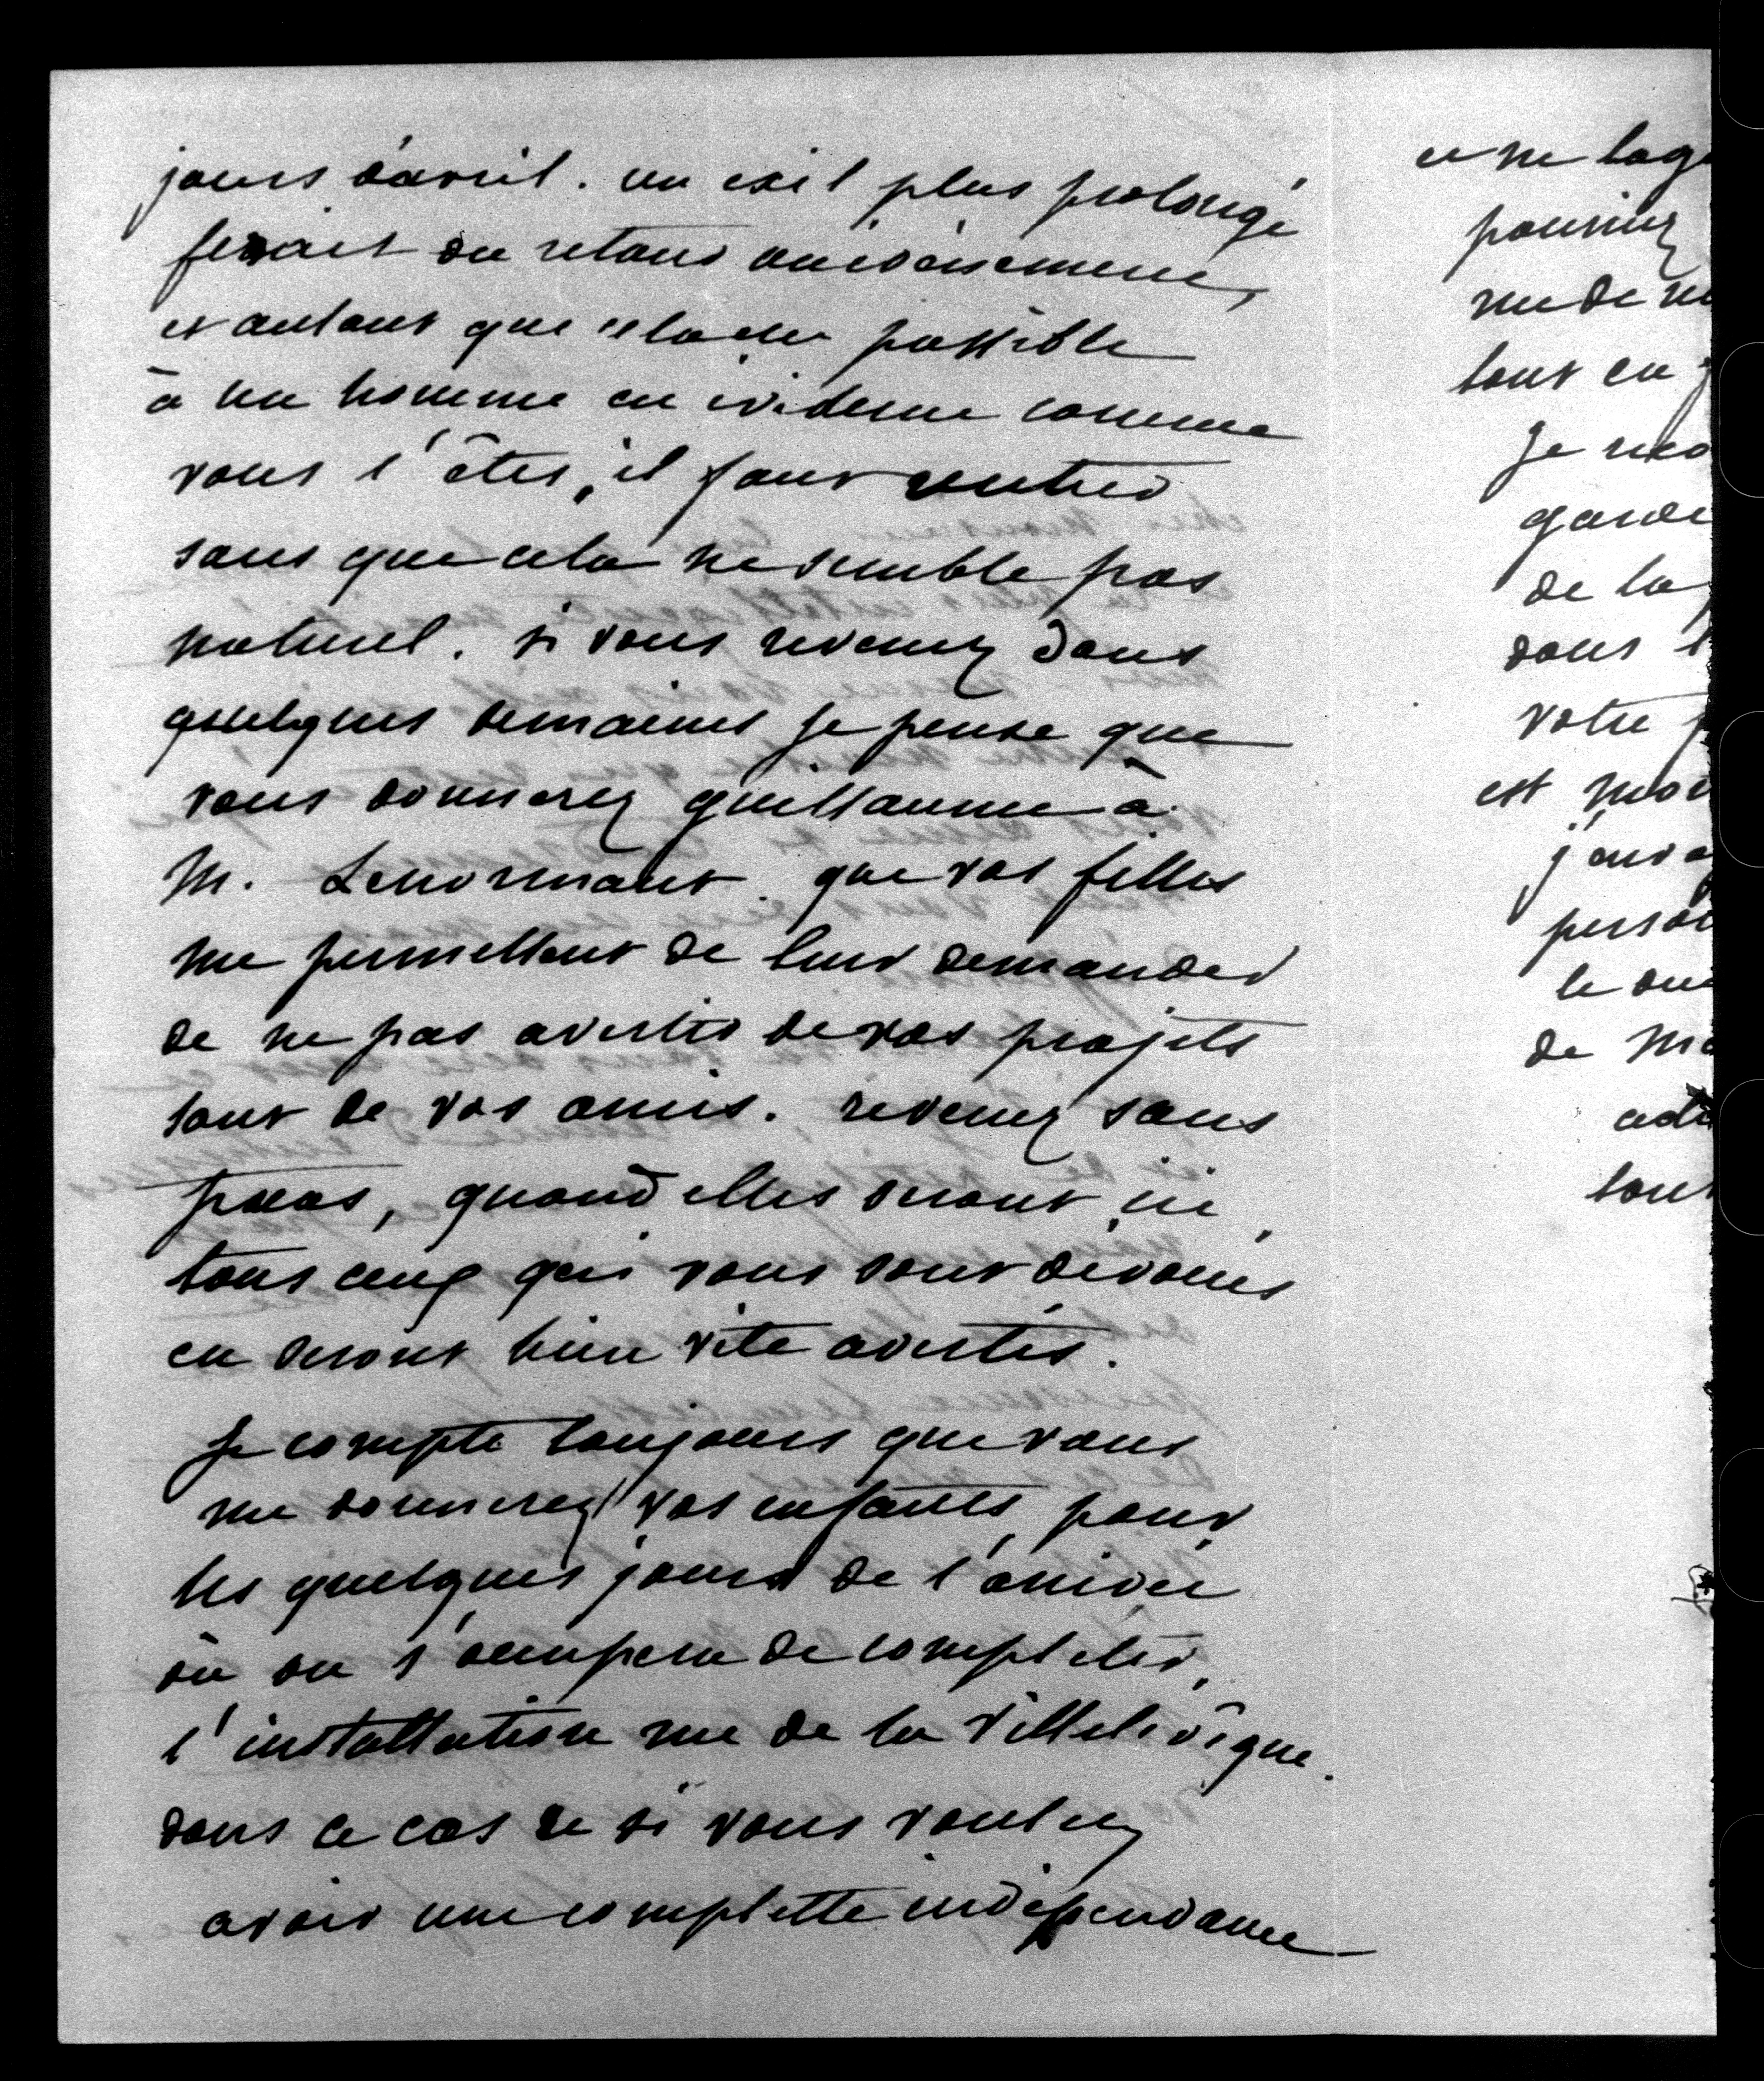 jours d'avril. un exil plus prolongé
ferait du retour un évènement,
et autant que cela est possible
à un homme en évidence comme
vous l'êtes, il faut rentrer
sans que cela ne semble pas
naturel. si vous revenez dans
quelques semaines je pense que
vous donnerez guillaume à
M. Lenormant. que vos filles
me permettent de leur demander
de ne pas avertir de vos projets
tant de vos amis. revenez sans
fracas, quand elles seront ici
tous ceux qui vous sont dévoués
en seront bien vite avertis.
Je compte toujours que vous
me donnerez vos enfants pour
les quelques jours de l'arrivée
où on s'occupera de completer
l'installation rue de la Ville l'évêque.
dans ce cas et si vous vouliez
avoir une complette indépendance
et ne log
pouriez
rue de
tout en
Je
garde
de la
dans l
votre
est
j'au
person
le
de
tout